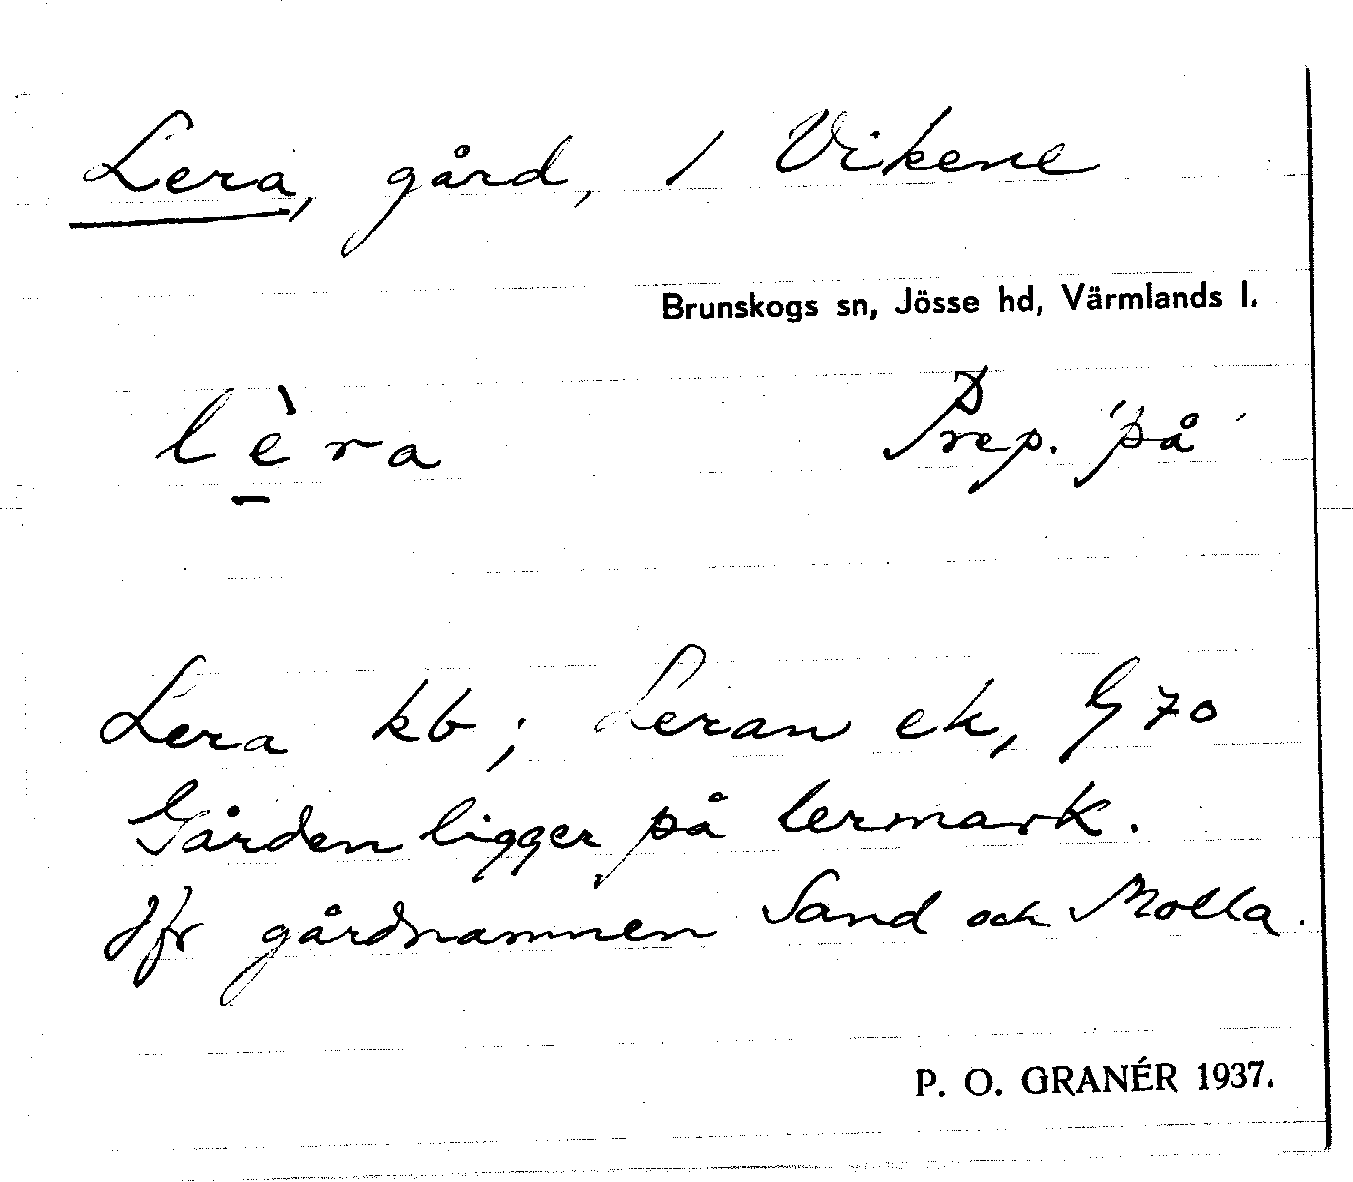 Lera, gård, / Vikene
Brunskogs sn, Jösse hd, Värmlands l.
lèra Prep. 'på'
Lera kb; Leran ek, G 70
Gården ligger på lermark.
Jfr gårdnamnen Sand och Molla.
P. O. GRANÉR 1937.